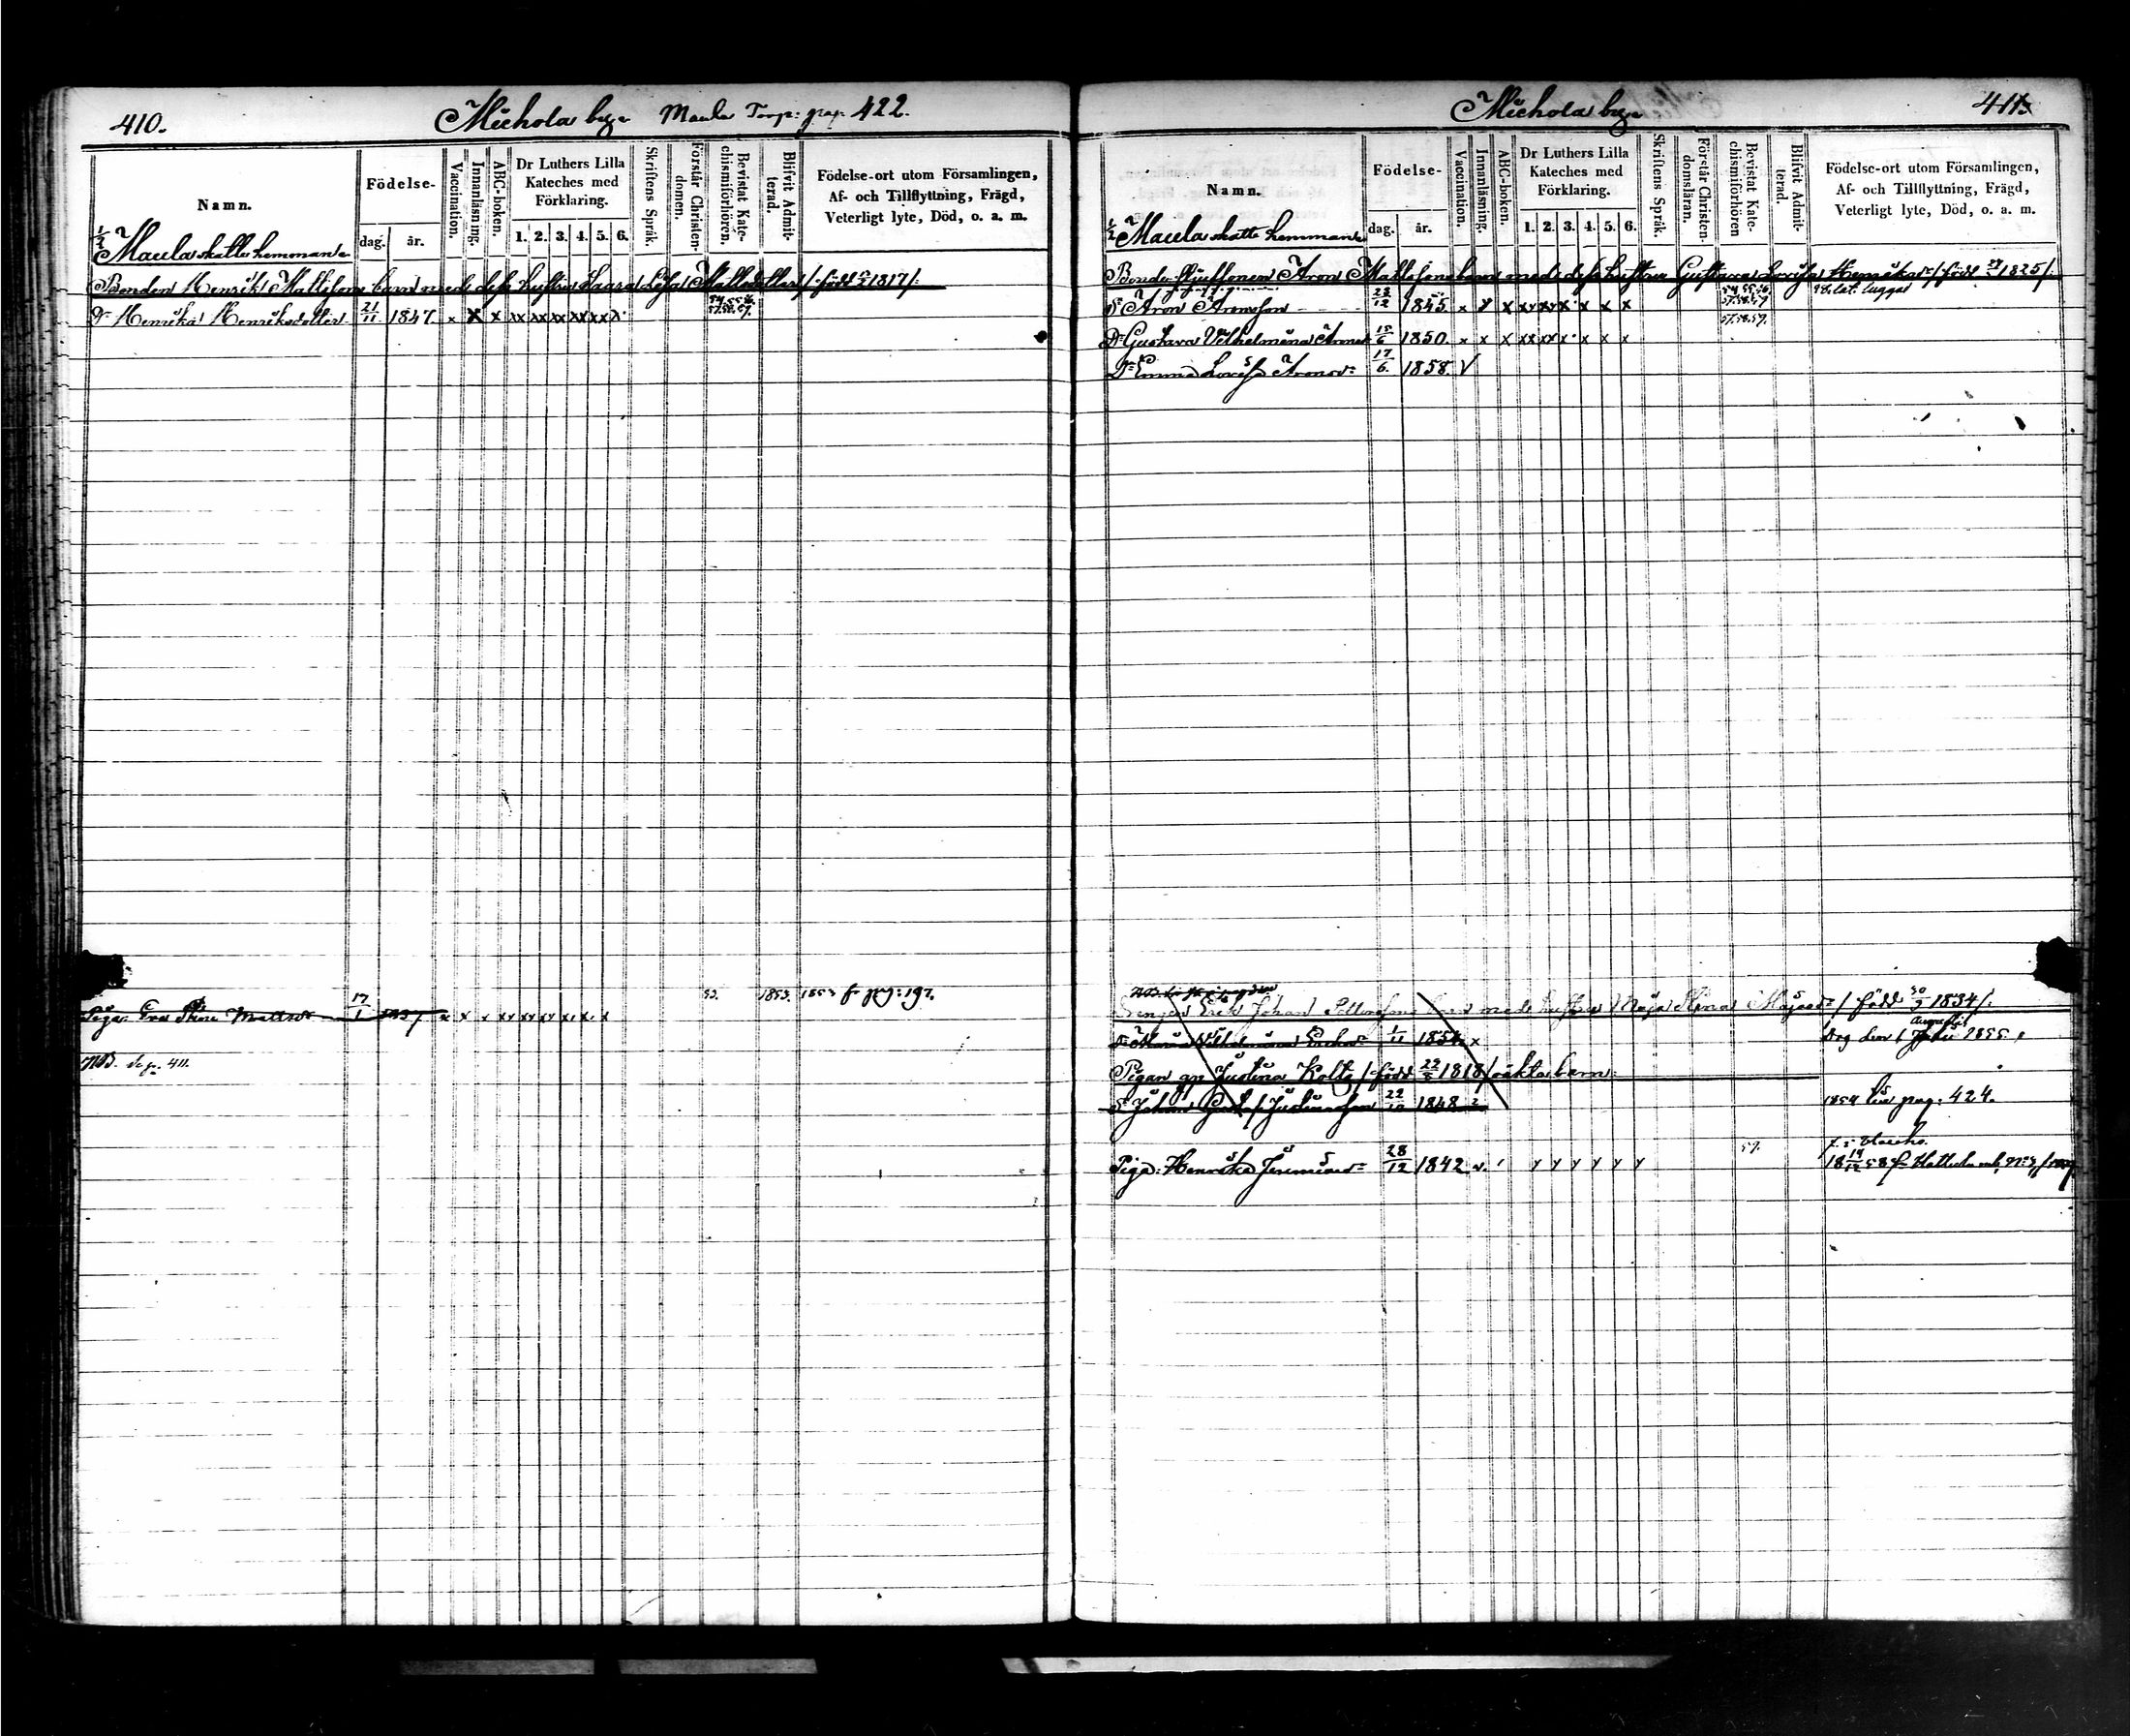 410.
Michola by Maula Torp: pag. 422.
Namn.
Födelse-
dag.
år.
Vaccination.
Innanläsning.
ABC-boken.
Dr Luthers Lilla Kateches med Förklaring.
1. 2. 3. 4. 5. 6.
Skriftens Språk.
Förstår Christen-domen.
Bevistat Kate-chismiförhören.
Blifvit Admit-terad.
Födelse-ort utom Församlingen,
Af- och Tillflyttning, Frägd,
Veterligt lyte, Död, o. a. m.
1/2 Maula skatte hemman
Bonden Henrik Mattsons barn med dess hustru Mattsdotter /: född 1817 /:
Dr Henrika Henriksdotter 21/11 1847. x x x xx xx xx xx xx x
Piga Eva Stina Mattsdr 17/1 1837 x x x xx xx xx x x x 53. 1853. 1853 fr pag: 197.
NB. se p. 411.
411
Michola by
Namn.
Födelse-
dag.
år.
Vaccination.
Innanläsning.
ABC-boken.
Dr Luthers Lilla Kateches med Förklaring.
1. 2. 3. 4. 5. 6.
Skriftens Språk.
Förstår Christen-domsläran.
Bevistat Kate-chismiförhören
Blifvit Admit-terad.
Födelse-ort utom Församlingen,
Af- och Tillflyttning, Frägd,
Veterligt lyte, Död, o. a. m.
1/2 Maula skatte hemman
Aron Mattssons barn med dess hustru Gustava Lovisa Henriksdr /: född 1825 /:
Sn Aron Aronsson 28/12 1845. x x x xx xx x x x x
57.58.59.
Dr Gustava Vilhelmina Aronsdr 15/6 1850. x x x xx xx x x x x
Dr Emma Lovisa Aronsdr 17/6. 1858. V
Drengen Erik Johan barn med hustru Maja Stina /: född 30/9 1834 /:
Dr Maria Vilhelmina Eriksdr 1/11 1854 x Dog den 1 Augusti 1855.
Pigan Justina Kolts /: född 1818 /: oäkta barn
Sn Johan Gustaf Justinason 1848 1854 till pag: 424.
Piga: Henrika 28/12 1842 59. 18 19/12 58 fr